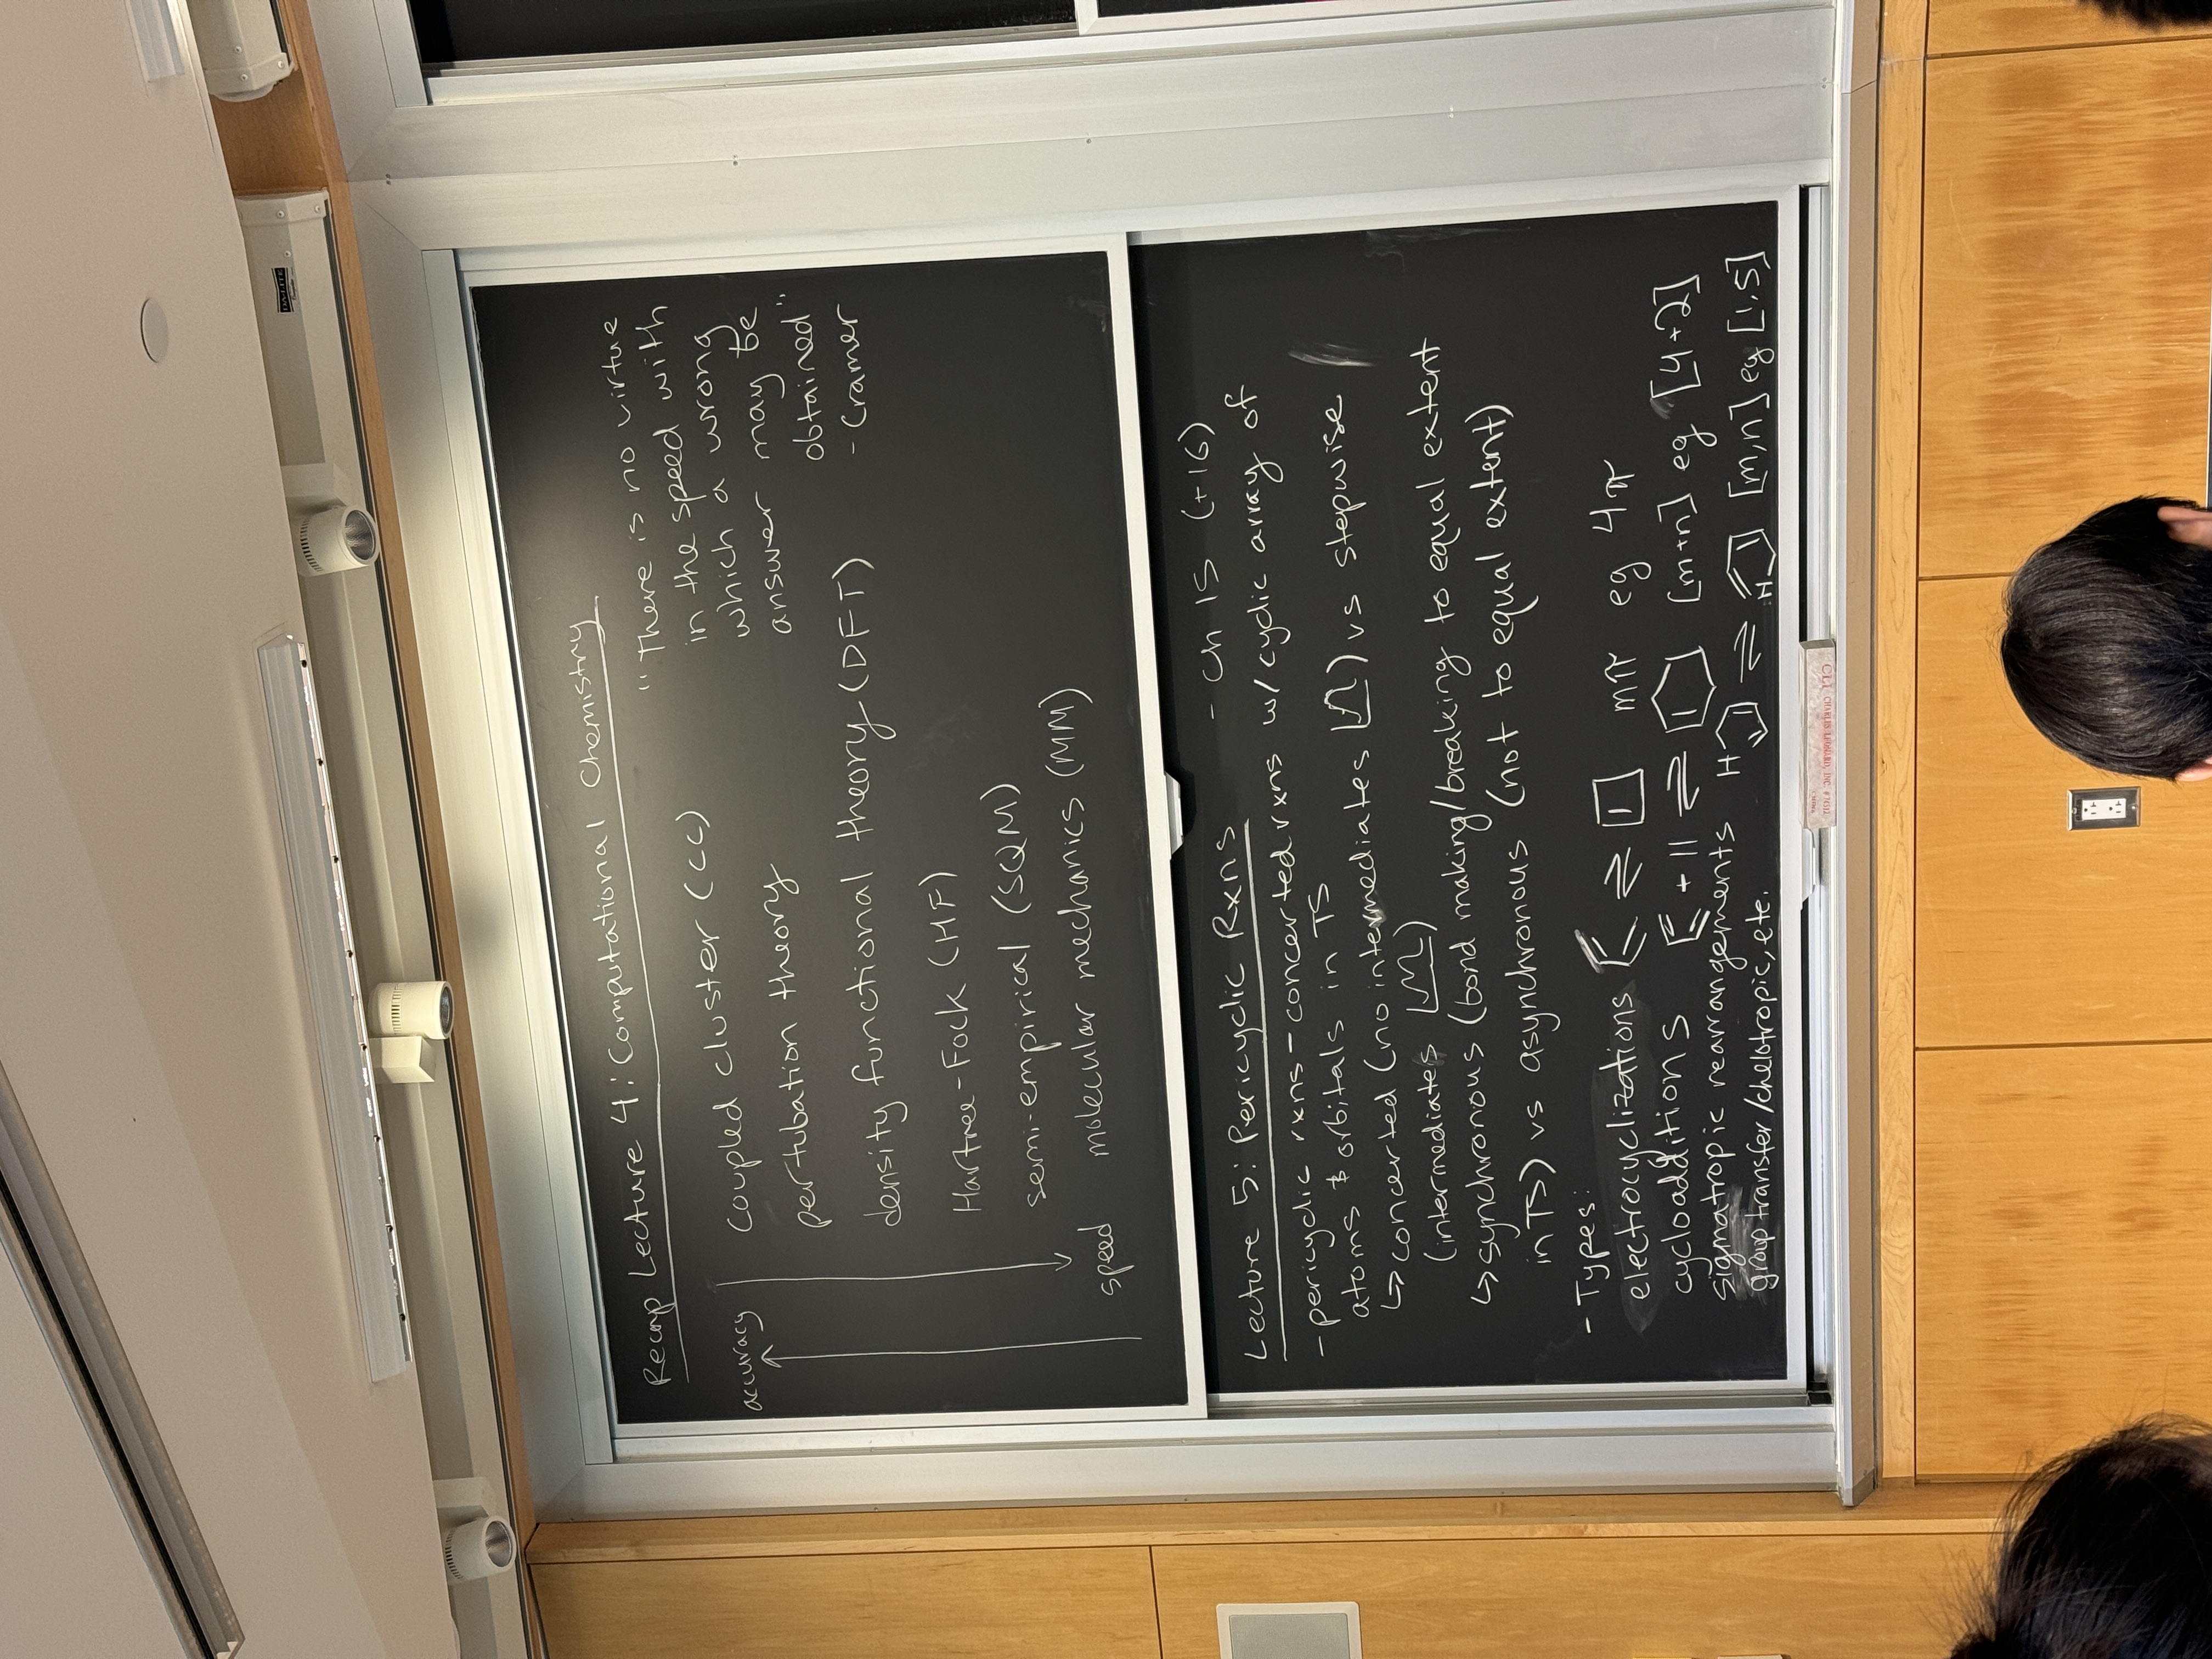 DA-LITE
Recap Lecture 4: Computational Chemistry
accuracy
speed
coupled cluster (CC)
pertubation theory
density functional theory (DFT)
Hartree-Fock (HF)
semi-empirical (SQM)
molecular mechanics (MM)
"There is no virtue
in the speed with
which a wrong
answer may be
obtained"
- Cramer
Lecture 5: Pericyclic Rxns
- Ch 15 (+16)
- pericyclic rxns - concerted rxns w/ cyclic array of
atoms & orbitals in TS
↳ concerted (no intermediates ) vs stepwise
(intermediates )
↳ synchronous (bond making/breaking to equal extent
in TS) vs asynchronous (not to equal extent)
- Types:
electrocyclizations ⇌ mπ eg 4π
cycloadditions + ⇌ [m+n] eg [4+2]
sigmatropic rearrangements H ⇌ H [m,n] eg [1,5]
group transfer/chelotropic, etc.
CLI CHARLES LEONARD, INC. #74512